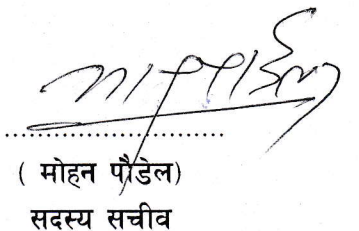 ....................................
( मोहन पौडेल)
सदस्य सचीव